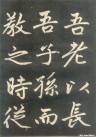 吾老以長
吾子孫而
敬之時從